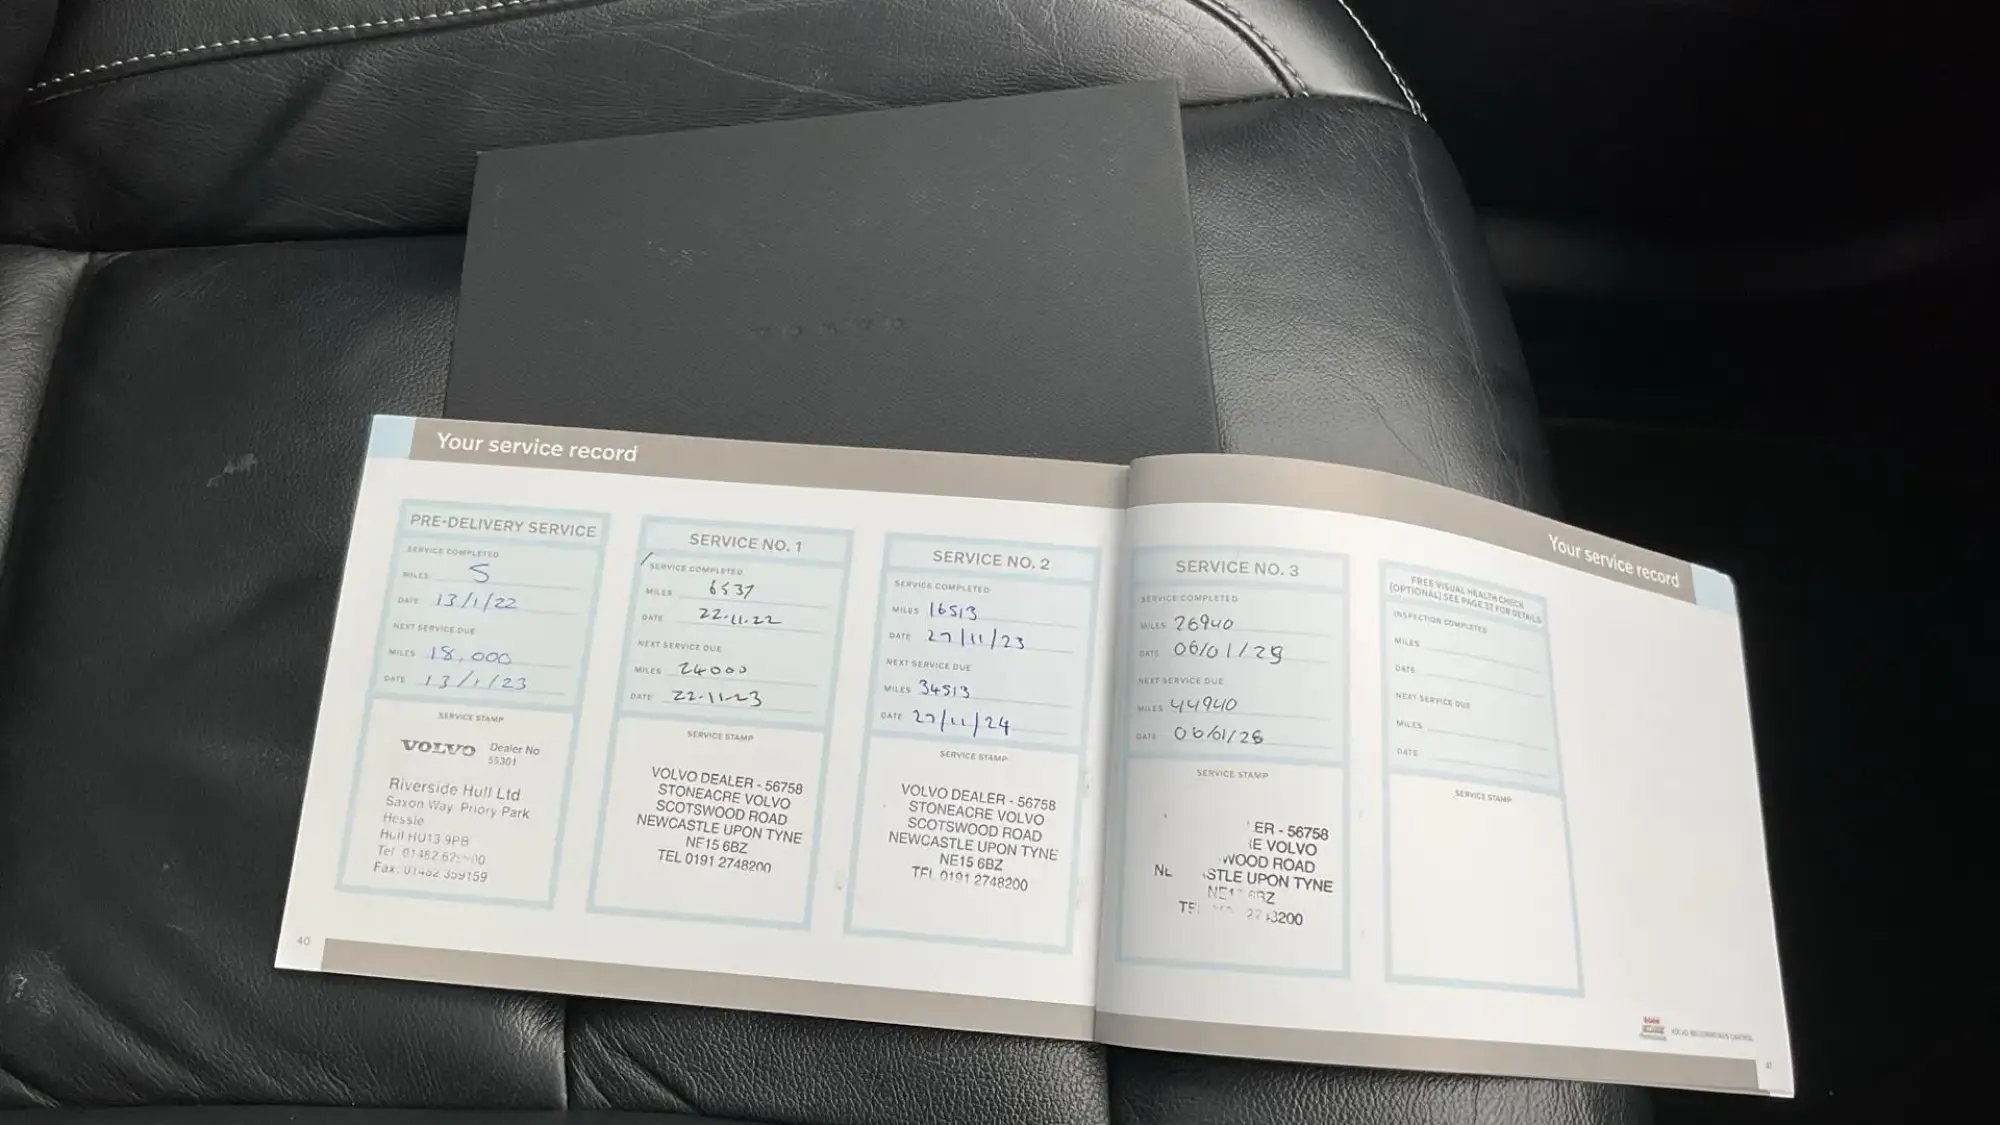 VOLVO
Your service record
PRE-DELIVERY SERVICE
SERVICE COMPLETED
MILES 5
DATE 13/1/22
NEXT SERVICE DUE
MILES 18,000
DATE 13/1/23
SERVICE STAMP
VOLVO Dealer No
55301
Riverside Hull Ltd
Saxon Way, Priory Park
Hessle
Hull HU13 9PB
Tel 01482
Fax. 01482 359159
40
SERVICE NO. 1
SERVICE COMPLETED
MILES 6537
DATE 22.11.22
NEXT SERVICE DUE
MILES 24000
DATE 22.11.23
SERVICE STAMP
VOLVO DEALER - 56758
STONEACRE VOLVO
SCOTSWOOD ROAD
NEWCASTLE UPON TYNE
NE15 6BZ
TEL 0191 2748200
SERVICE NO. 2
SERVICE COMPLETED
MILES 16513
DATE 27/11/23
NEXT SERVICE DUE
MILES 34513
DATE 27/11/24
SERVICE STAMP
VOLVO DEALER - 56758
STONEACRE VOLVO
SCOTSWOOD ROAD
NEWCASTLE UPON TYNE
NE15 6BZ
TEL 0191 2748200
Your service record
SERVICE NO. 3
SERVICE COMPLETED
MILES 26940
DATE 06/01/25
NEXT SERVICE DUE
MILES 44940
DATE 06/01/26
SERVICE STAMP
ER - 56758
E VOLVO
WOOD ROAD
STLE UPON TYNE
6BZ
3200
FREE VISUAL HEALTH CHECK
(OPTIONAL) SEE PAGE 37 FOR DETAILS
INSPECTION COMPLETED
MILES
DATE
NEXT SERVICE DUE
MILES
DATE
SERVICE STAMP
VOLVO RECOMMENDS CASTROL
41